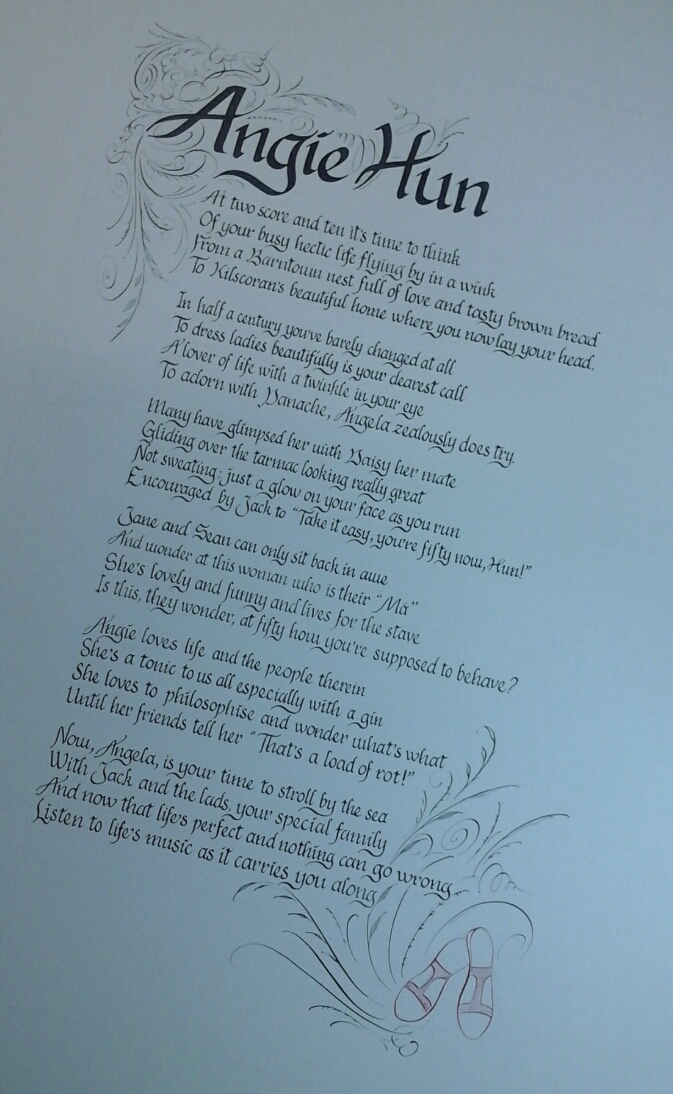 Angie Hun
At two score and ten it's time to think
Of your busy hectic life flying by in a wink
From a Barntown nest full of love and tasty brown bread
To Kilscoran's beautiful home where you now lay your head.
In half a century you've barely changed at all
To dress ladies beautifully is your dearest call
A lover of life with a twinkle in your eye
To adorn with Panache, Angela zealously does try.
Many have glimpsed her with Daisy her mate
Gliding over the tarmac looking really great
Not sweating; just a glow on your face as you run
Encouraged by Jack to "Take it easy, you're fifty now, Hun!"
Jane and Sean can only sit back in awe
And wonder at this woman who is their "Má"
She's lovely and funny and lives for the stave
Is this, they wonder, at fifty how you're supposed to behave?
Angie loves life and the people therein
She's a tonic to us all especially with a gin
She loves to philosophise and wonder what's what
Until her friends tell her "That's a load of rot!"
Now, Angela, is your time to stroll by the sea
With Jack and the lads, your special family
And now that life's perfect and nothing can go wrong
Listen to life's music as it carries you along